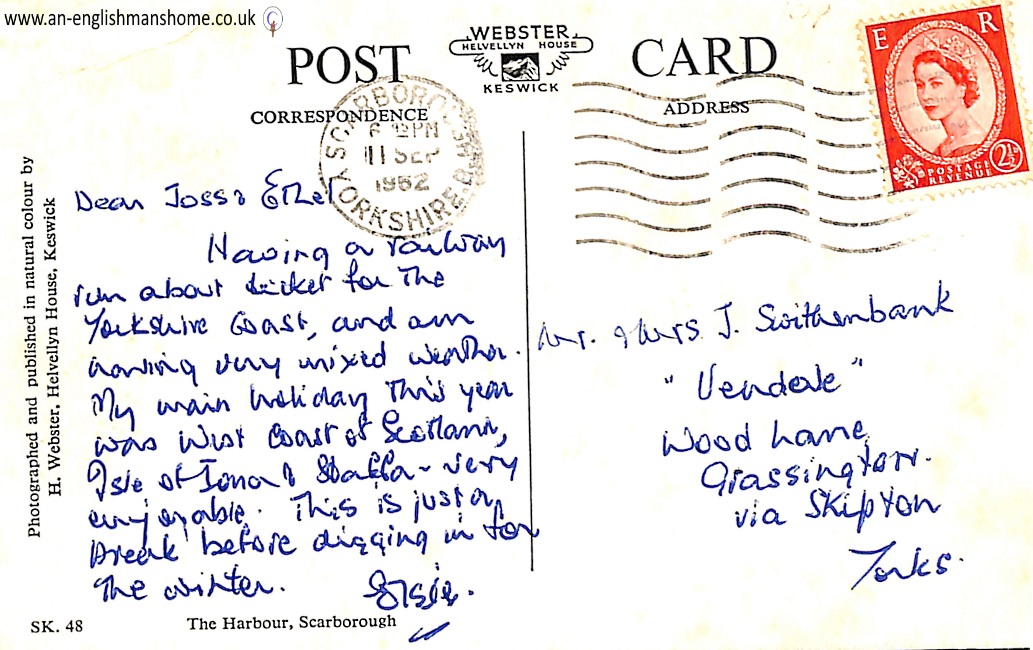 www.an-englishmanshome.co.uk
POST CARD
WEBSTER
HELVELLYN HOUSE
KESWICK
CORRESPONDENCE
ADDRESS
SCARBOROUGH
6 PM
11 SEP
1962
YORKSHIRE
E R
2½
POSTAGE
REVENUE
Photographed and published in natural colour by
H. Webster, Helvellyn House, Keswick
Dear Joss & Ethel
Having a railway
run about ticket for the
Yorkshire Coast, and am
having very mixed weather.
My main holiday this year
was West Coast of Scotland,
Isle of Iona & Staffa - very
enjoyable. This is just a
break before digging in for
the winter. Elsie.
Mr. & Mrs J. Swithenbank
"Vendale"
Wood Lane
Grassington.
via Skipton
Yorks.
SK. 48
The Harbour, Scarborough